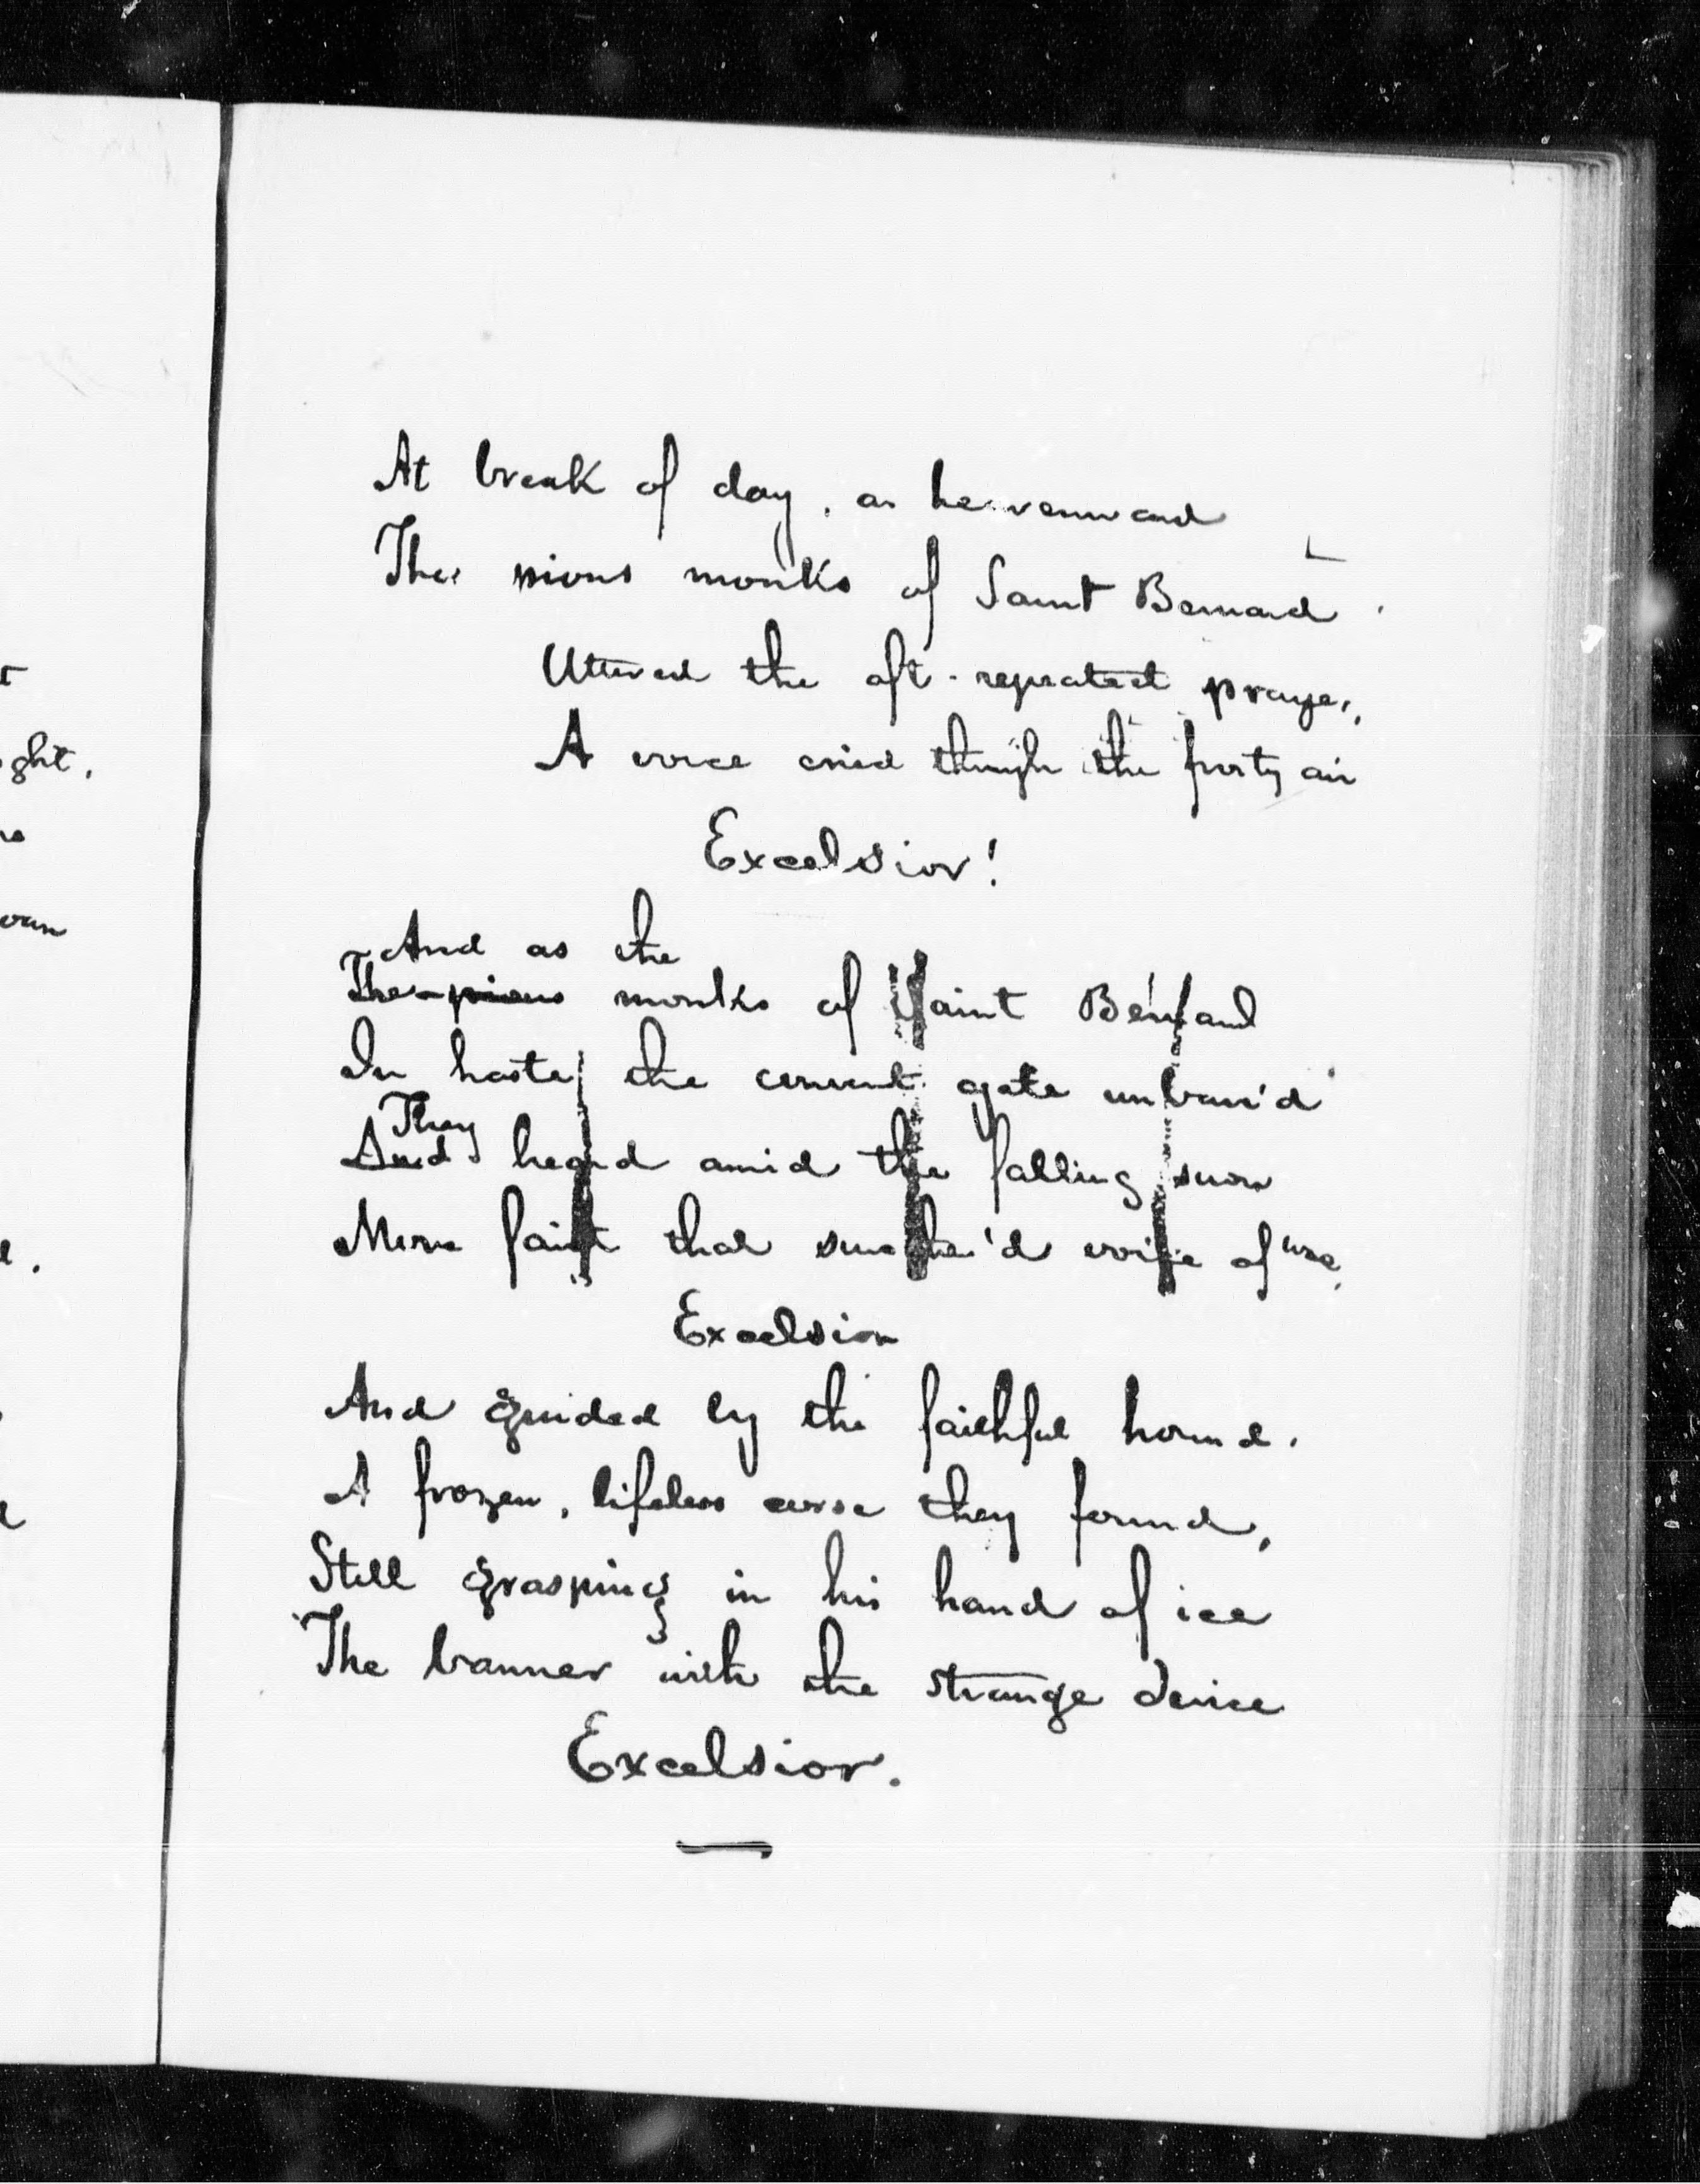 ght.
At break of day, as heavenward
The pious monks of Saint Bernard
Uttered the oft-repeated prayer,
A voice cried through the frosty air
Excelsior!
And as the
The pious monks of Saint Bernard
In haste the convent gate unbarr'd
They
And heard amid the falling snow
More faint that smother'd voice of woe,
Excelsior
And guided by the faithful hound.
A frozen, lifeless corse they found,
Still grasping in his hand of ice
The banner with the strange device
Excelsior.